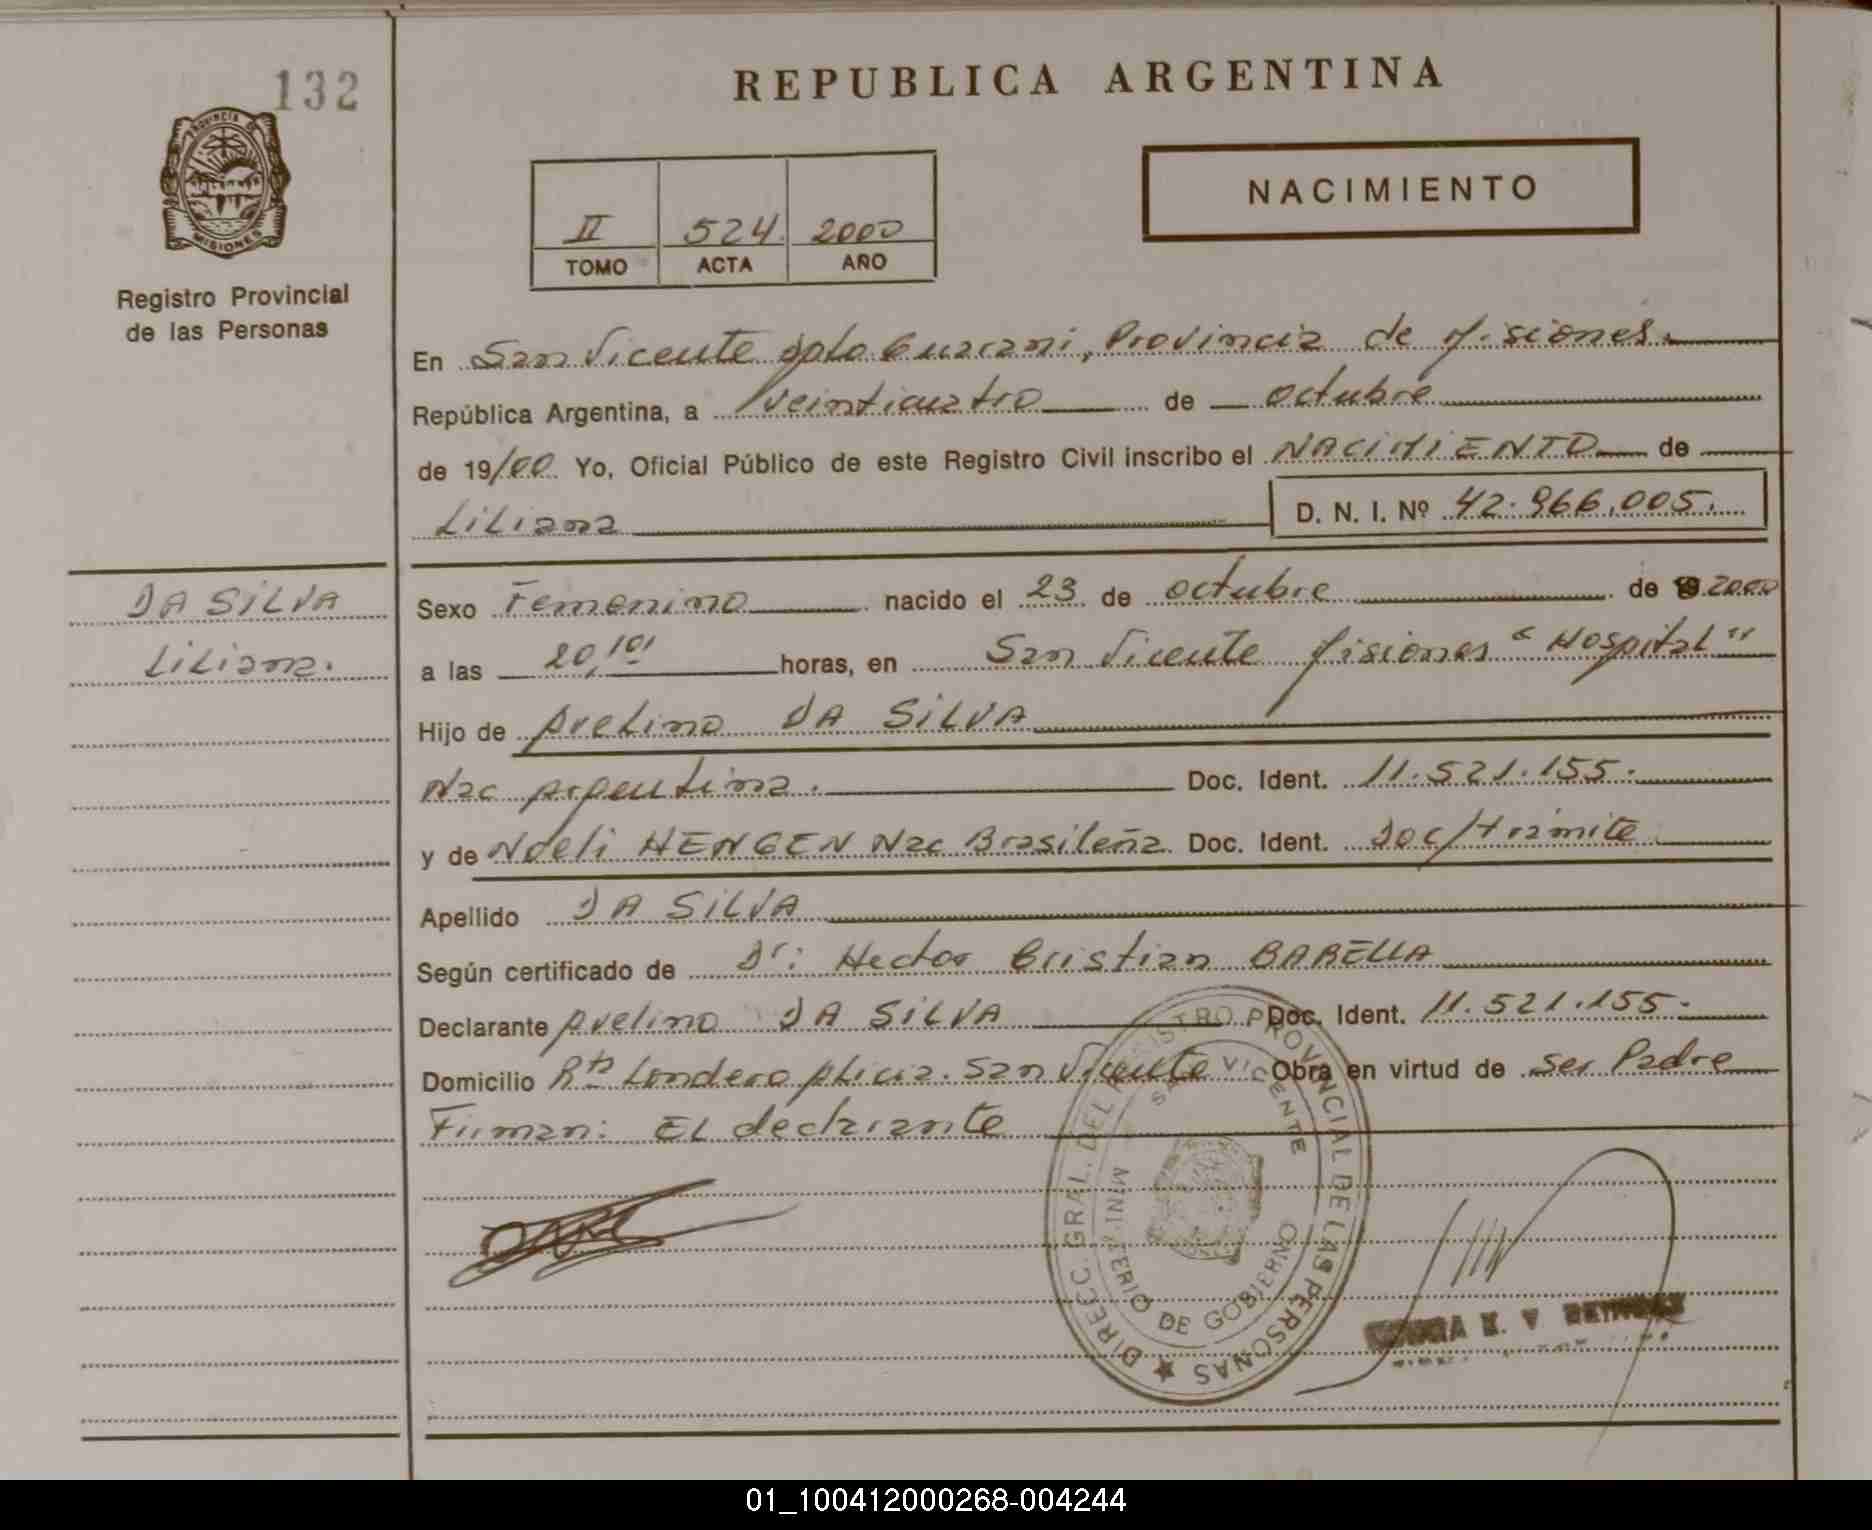 132
PROVINCIA DE
MISIONES
Registro Provincial
de las Personas
REPUBLICA ARGENTINA
NACIMIENTO
II 524 2000
TOMO ACTA AÑO
En San Vicente Dpto Guarani, Provincia de Misiones.
República Argentina, a veinticuatro de octubre
de 19/00 Yo, Oficial Público de este Registro Civil inscribo el NACIMIENTO de
Liliana D. N. I. Nº 42.966.005.
DA SILVA
Liliana.
Sexo Femenino nacido el 23 de octubre de 2000
a las 20,10' horas, en San Vicente Misiones "Hospital"
Hijo de Avelino DA SILVA
Nac Argentina. Doc. Ident. 11.521.155.
y de Noeli HENGEN Nac Brasileña Doc. Ident. Doc/tramite
Apellido DA SILVA
Según certificado de Dr: Hector Cristian BARELLA
Declarante Avelino DA SILVA Doc. Ident. 11.521.155.
Domicilio Londero San Vicente Obra en virtud de ser Padre
Firman: EL declarante
DIRECC. GRAL. DEL REGISTRO PROVINCIAL DE LAS PERSONAS
SAN VICENTE
MINISTERIO DE GOBIERNO
01_100412000268-004244